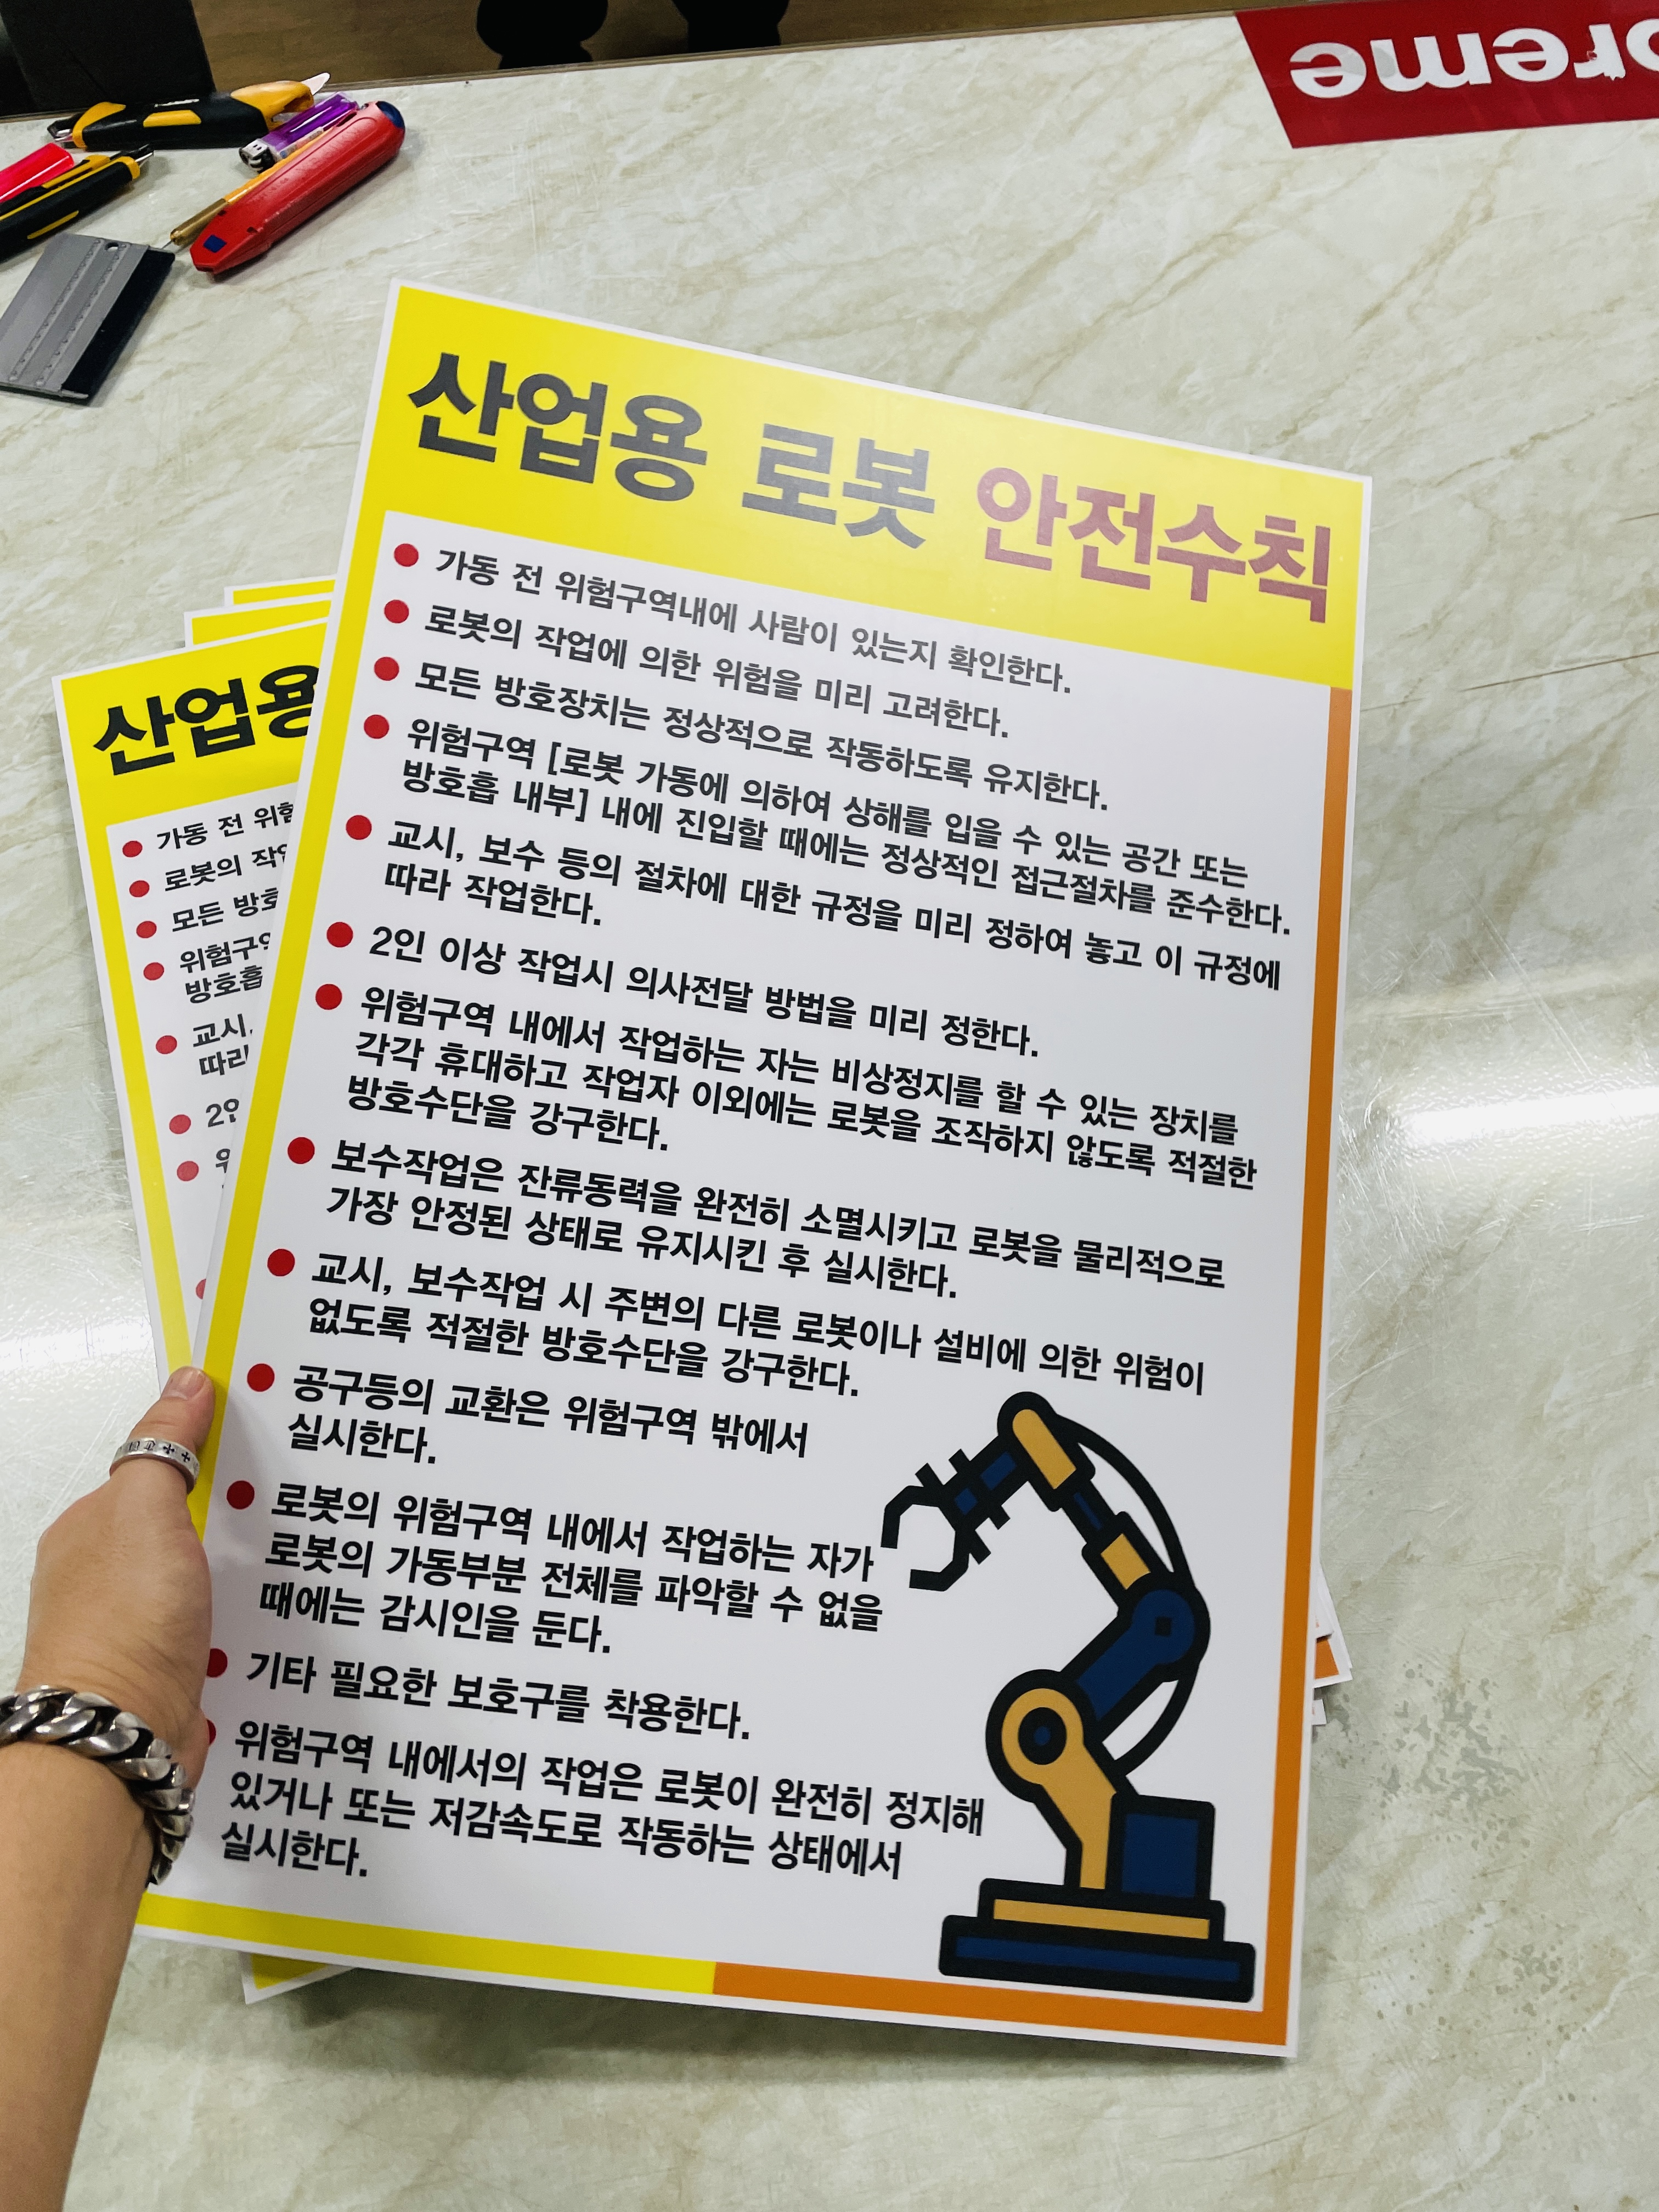 oreme
산업용 로봇 안전수칙
가동 전 위험구역내에 사람이 있는지 확인한다.
로봇의 작업에 의한 위험을 미리 고려한다.
모든 방호장치는 정상적으로 작동하도록 유지한다.
위험구역 [로봇 가동에 의하여 상해를 입을 수 있는 공간 또는
방호흡 내부] 내에 진입할 때에는 정상적인 접근절차를 준수한다.
교시, 보수 등의 절차에 대한 규정을 미리 정하여 놓고 이 규정에
따라 작업한다.
2인 이상 작업시 의사전달 방법을 미리 정한다.
위험구역 내에서 작업하는 자는 비상정지를 할 수 있는 장치를
각각 휴대하고 작업자 이외에는 로봇을 조작하지 않도록 적절한
방호수단을 강구한다.
보수작업은 잔류동력을 완전히 소멸시키고 로봇을 물리적으로
가장 안정된 상태로 유지시킨 후 실시한다.
교시, 보수작업 시 주변의 다른 로봇이나 설비에 의한 위험이
없도록 적절한 방호수단을 강구한다.
공구등의 교환은 위험구역 밖에서
실시한다.
로봇의 위험구역 내에서 작업하는 자가
로봇의 가동부분 전체를 파악할 수 없을
때에는 감시인을 둔다.
기타 필요한 보호구를 착용한다.
위험구역 내에서의 작업은 로봇이 완전히 정지해
있거나 또는 저감속도로 작동하는 상태에서
실시한다.
산업용
가동 전 위험
로봇의 작업
모든 방호
위험구역
방호흡
교시,
따라
2인
위